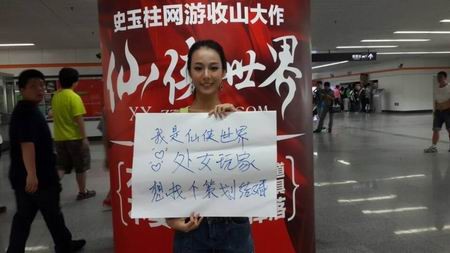 史玉柱网游收山大作
仙侠世界
我是仙侠世界
处女玩家
想找个策划结婚